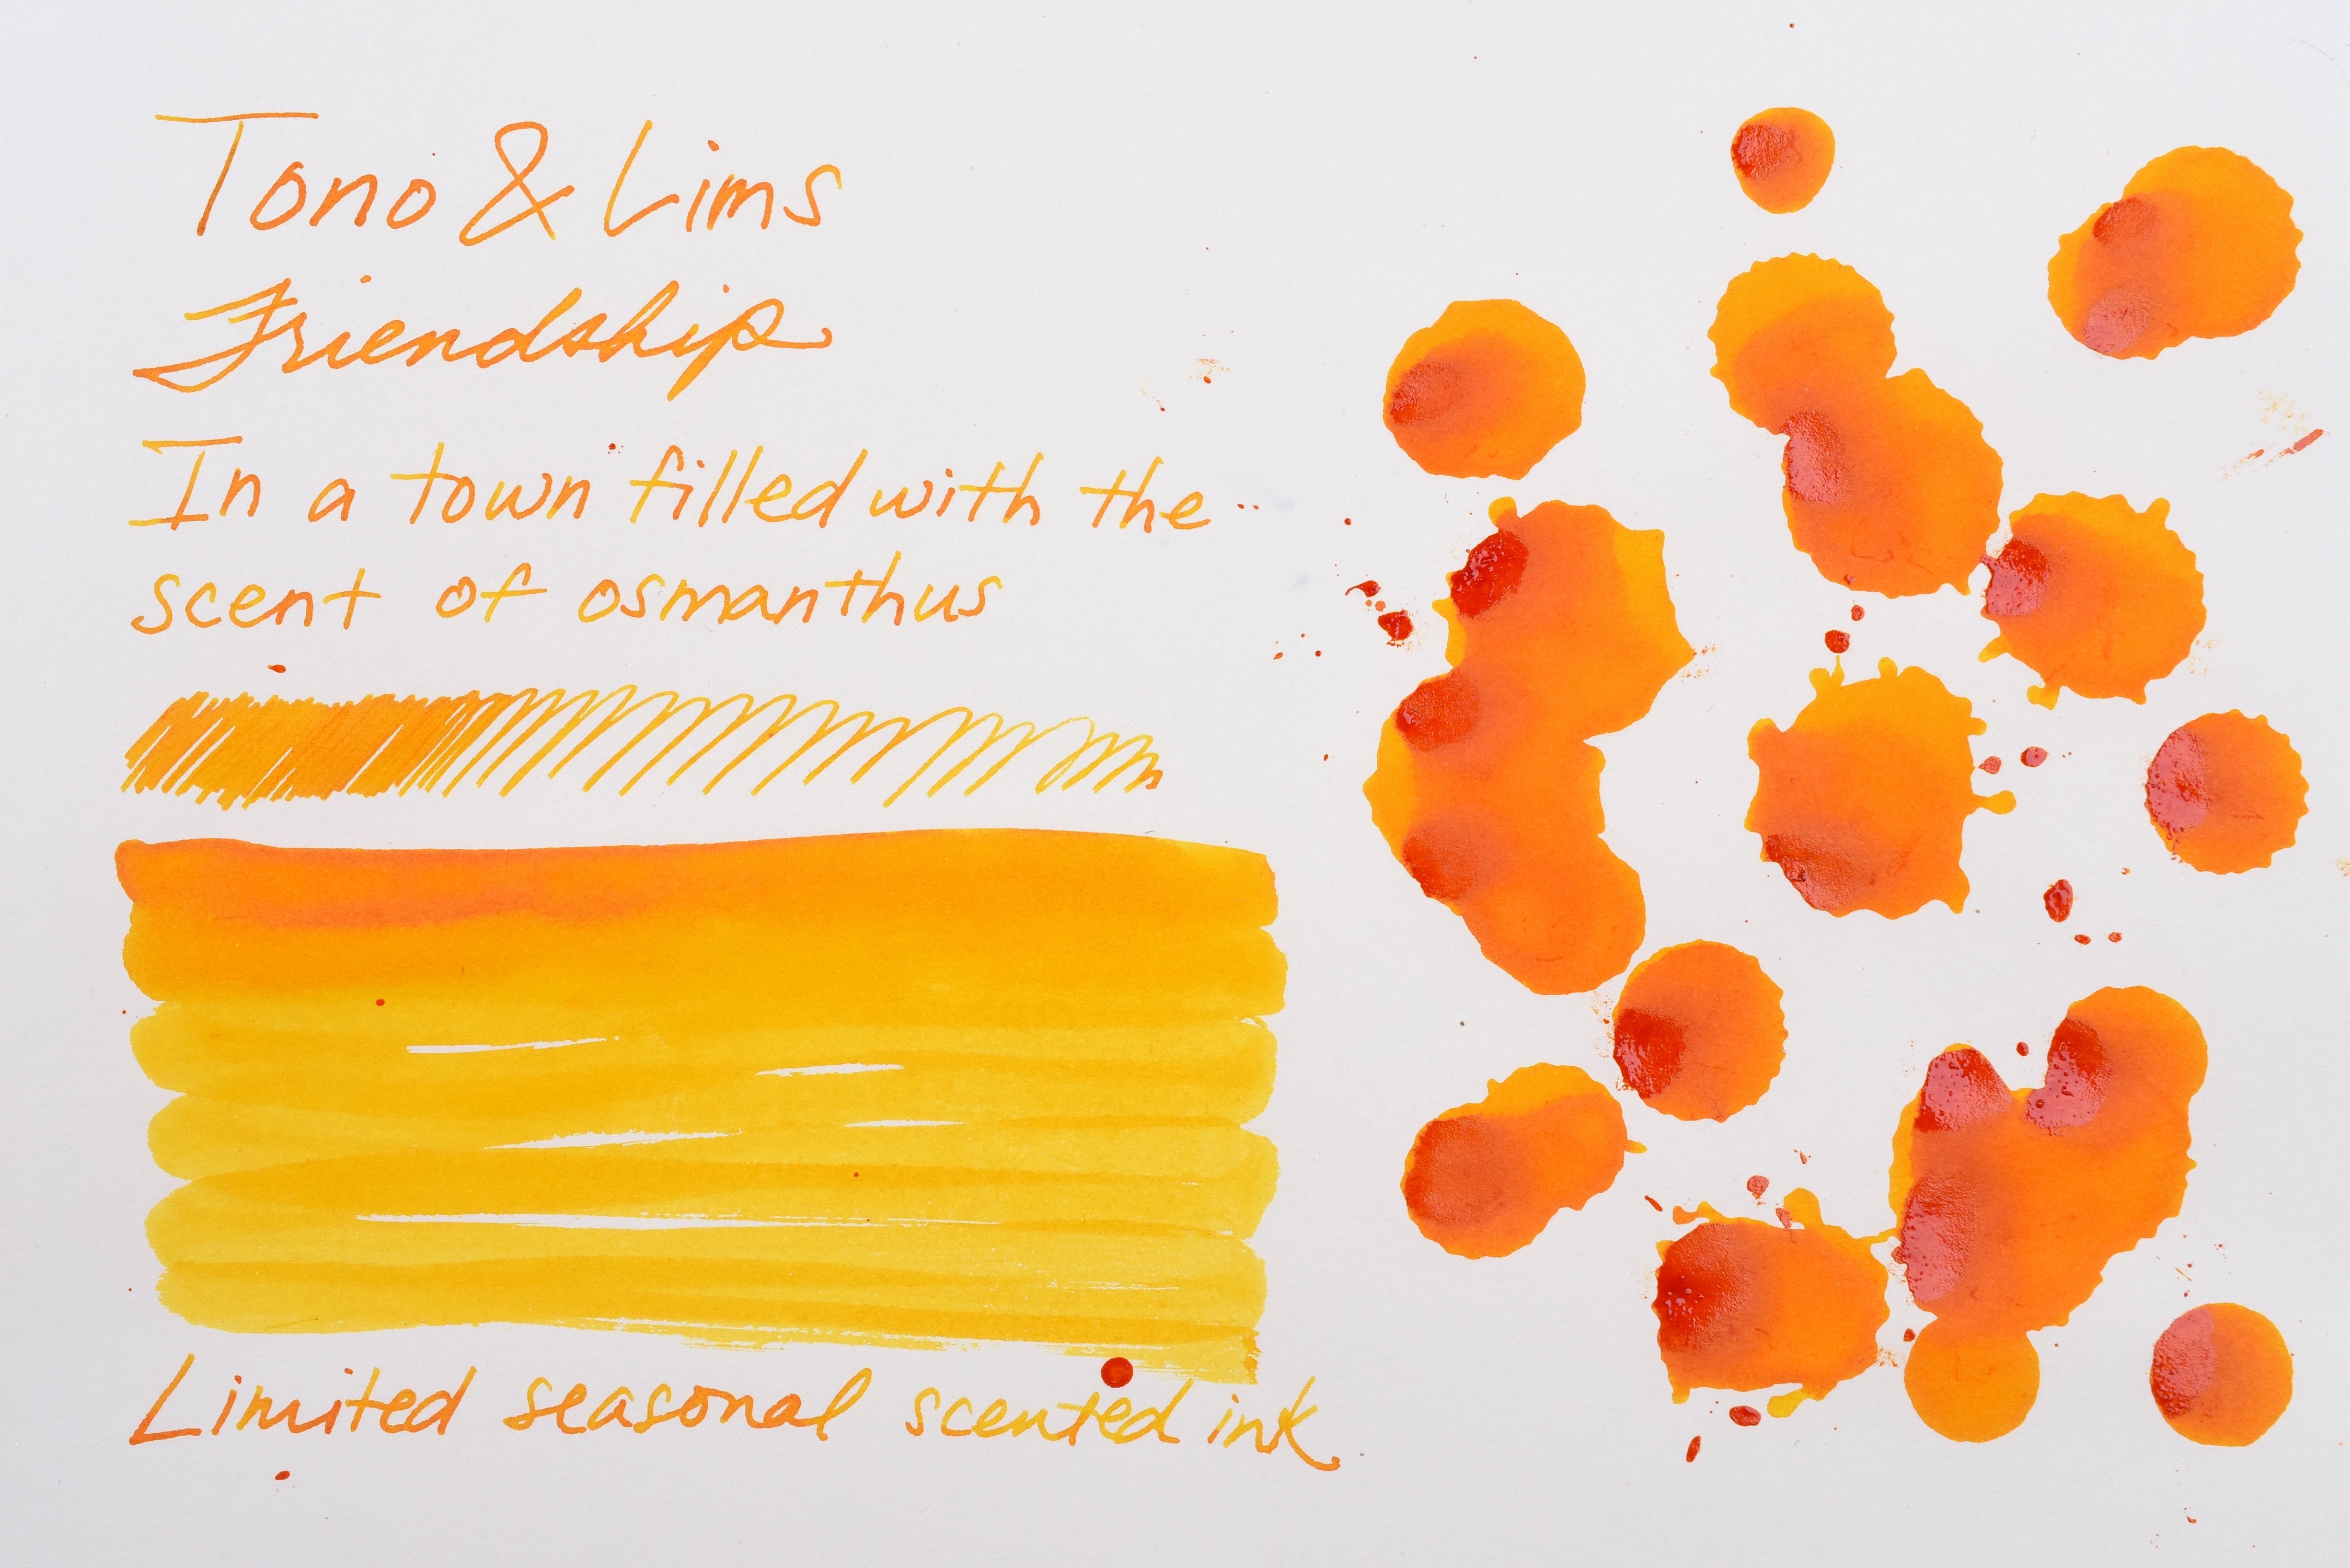 Tono & Lims
Friendship
In a town filled with the
scent of osmanthus
Limited seasonal scented ink